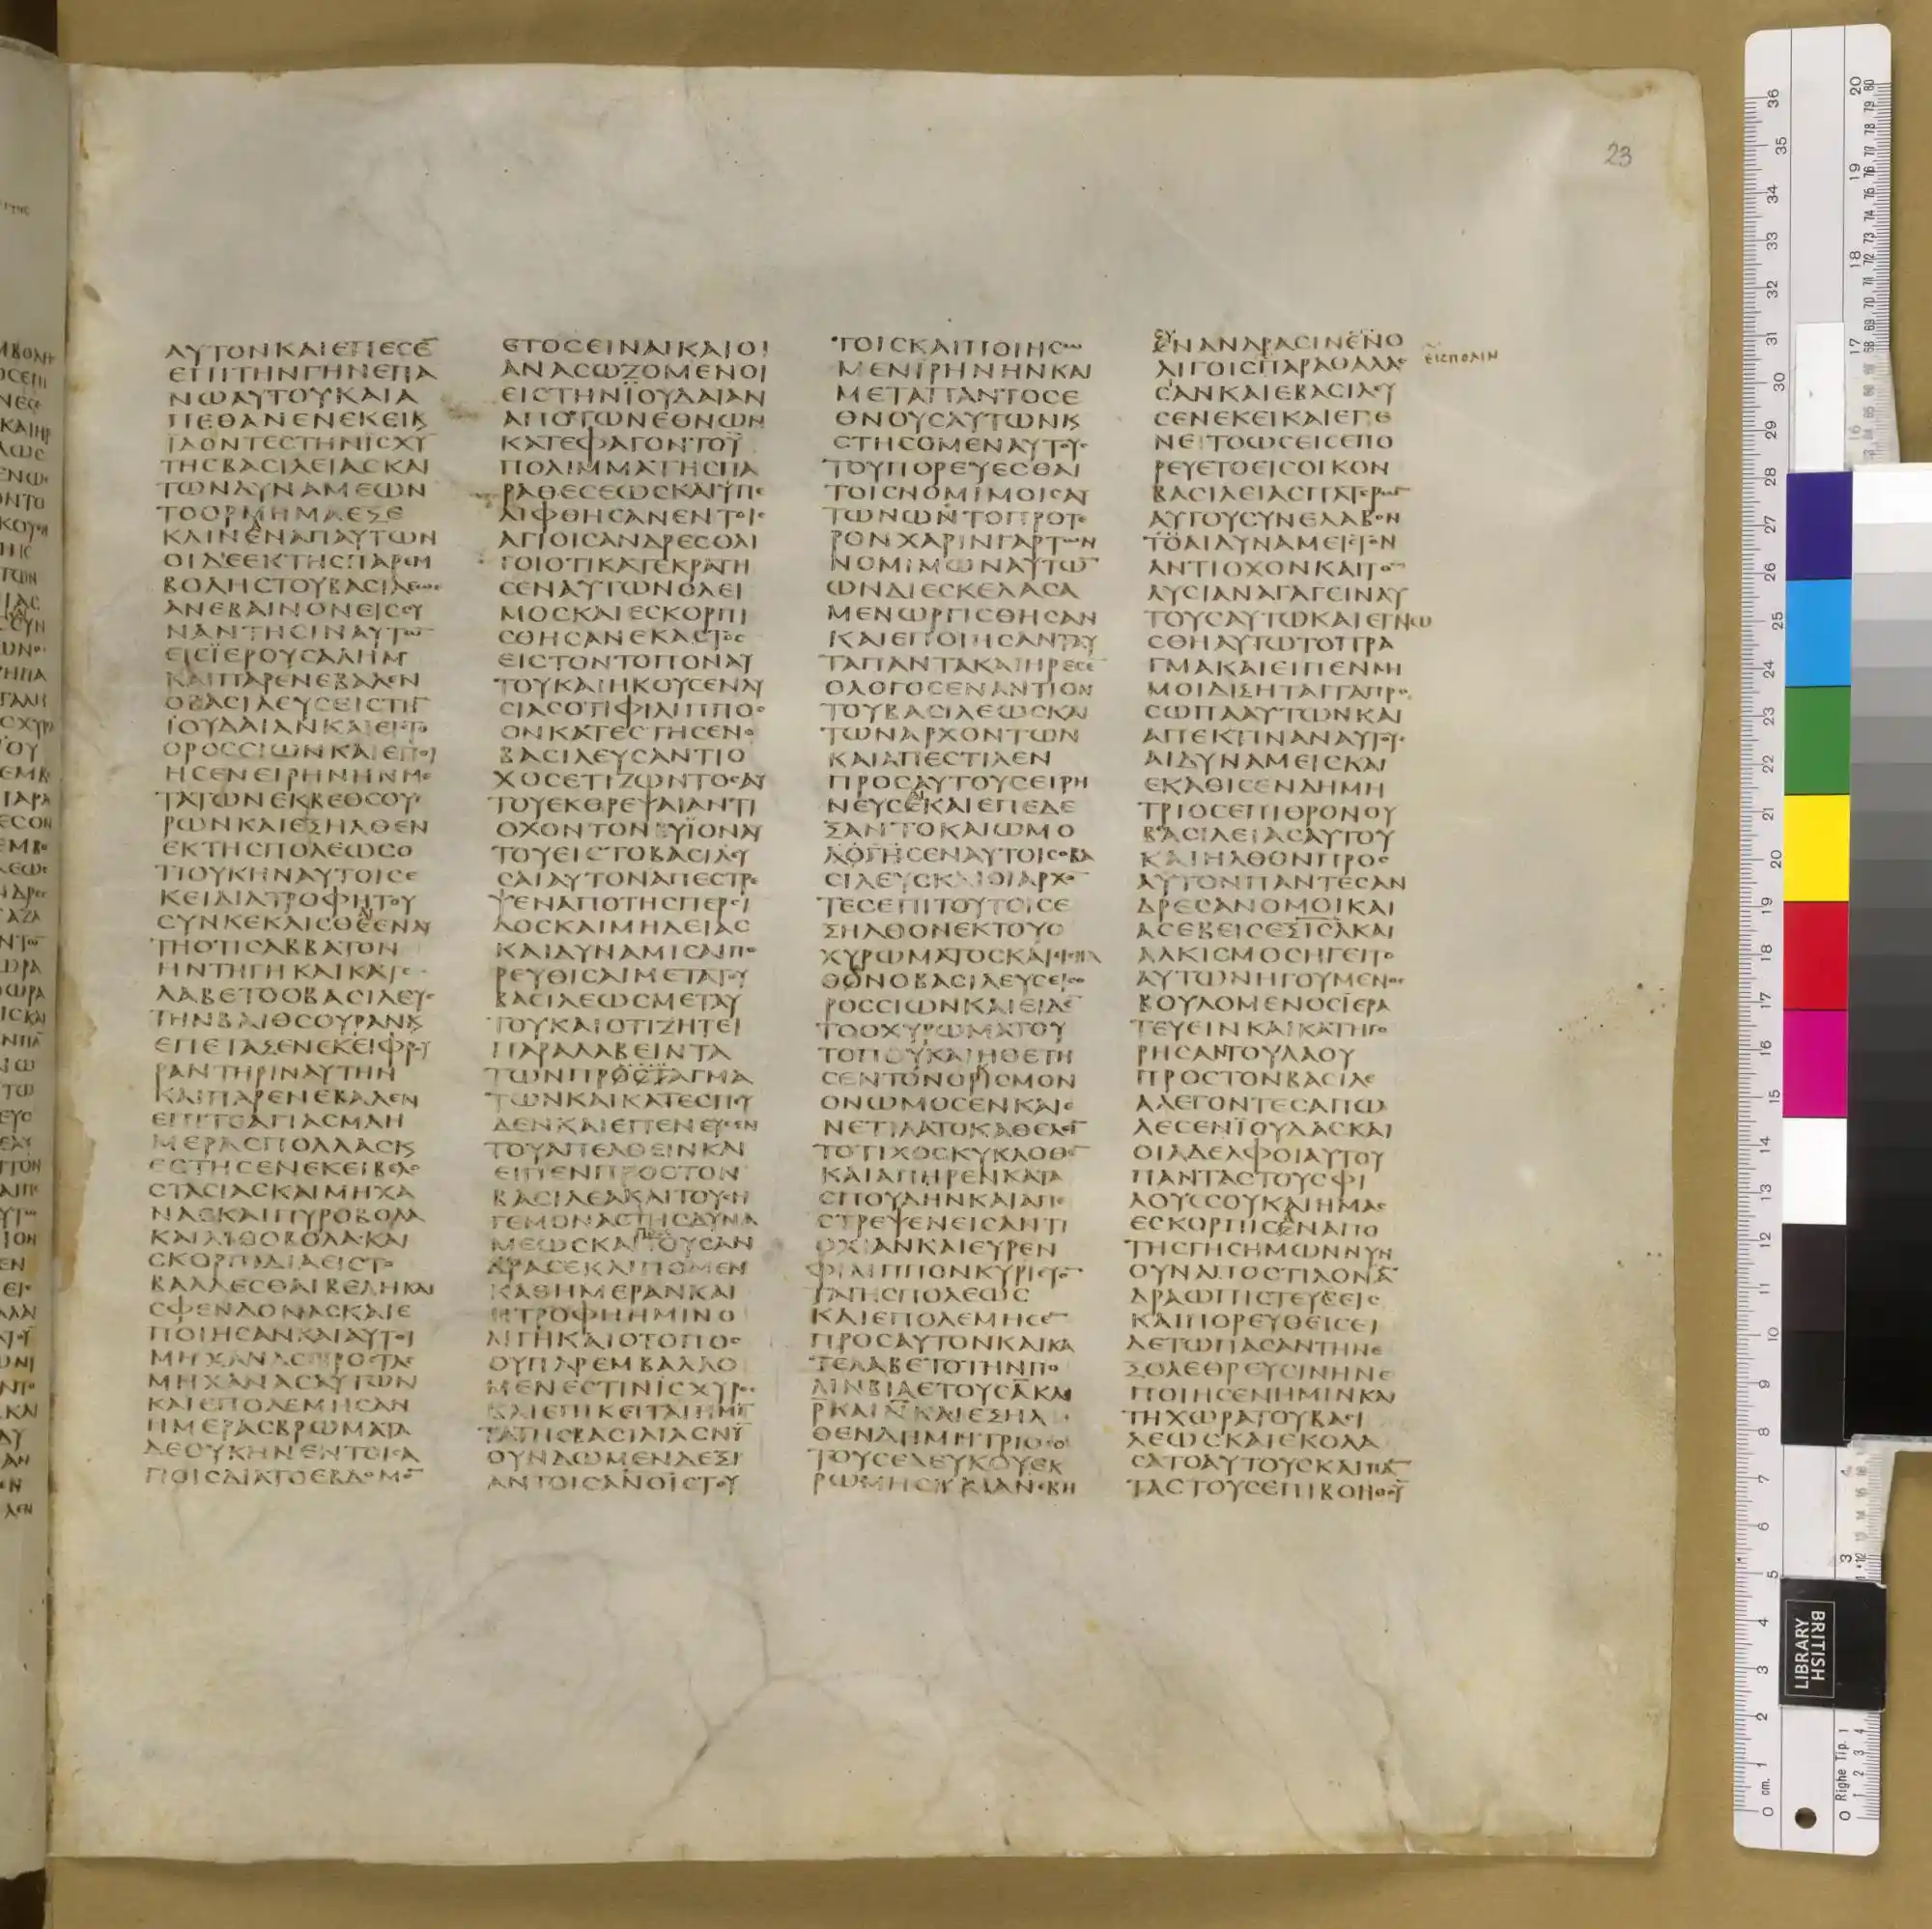 23
ΑΥΤΟΝΚΑΙΕΠΕϹΕ̅
ΕΠΙΤΗΝΓΗΝΕΠΑ
ΝΩΑΥΤΟΥΚΑΙΑ
ΠΕΘΑΝΕΝΕΚΕΙΚ
ΪΔΟΝΤΕϹΤΗΝΙϹΧΥ
ΤΗϹΒΑϹΙΛΕΙΑϹΚΑΙ
ΤΩΝΔΥΝΑΜΕΩΝ
ΤΟΟΡΜΗΜΑΕΞΕ
ΚΛΙΝΕΝΑΠΑΥΤΩΝ
ΟΙΔΕΕΚΤΗϹΠΑΡΕΜ
ΒΟΛΗϹΤΟΥΒΑϹΙΛΕΩϹ
ΑΝΕΒΑΙΝΟΝΕΙϹϹΥ
ΝΑΝΤΗϹΙΝΑΥΤΩ̅
ΕΙϹΪΕΡΟΥϹΑΛΗΜ
ΚΑΙΠΑΡΕΝΕΒΑΛΕΝ
ΟΒΑϹΙΛΕΥϹΕΙϹΤΗ̅
ΪΟΥΔΑΙΑΝΚΑΙΕΙϹΤΟ
ΟΡΟϹϹΙΩΝΚΑΙΕΠΟΙ
ΗϹΕΝΕΙΡΗΝΗΝΜΕ
ΤΑΤΩΝΕΚΒΕΘϹΟΥ
ΡΩΝΚΑΙΕΞΗΛΘΕΝ
ΕΚΤΗϹΠΟΛΕΩϹΟ
ΤΙΟΥΚΗΝΑΥΤΟΙϹΕ
ΚΕΙΔΙΑΤΡΟΦΗΤΟΥ
ϹΥΝΚΕΚΛΙϹΘΕΕΝΑΥ
ΤΗΟΤΙϹΑΒΒΑΤΟΝ
ΗΝΤΗΓΗΚΑΙΚΑΤΕ
ΛΑΒΕΤΟΟΒΑϹΙΛΕΥϹ
ΤΗΝΒΑΙΘϹΟΥΡΑΝΚ
ΕΠΕΤΑΞΕΝΕΚΕΙΦΡΟΥ
ΡΑΝΤΗΡΙΝΑΥΤΗΝ
ΚΑΙΠΑΡΕΝΕΒΑΛΕΝ
ΕΠΙΤΟΑΓΙΑϹΜΑΗ
ΜΕΡΑϹΠΟΛΛΑϹΚ
ΕϹΤΗϹΕΝΕΚΕΙΒΕΛΟ
ϹΤΑϹΙΑϹΚΑΙΜΗΧΑ
ΝΑϹΚΑΙΠΥΡΟΒΟΛΑ
ΚΑΙΛΙΘΟΒΟΛΑΚΑΙ
ϹΚΟΡΠΙΔΙΑΕΙϹΤΟ
ΒΑΛΛΕϹΘΑΙΒΕΛΗΚΑΙ
ϹΦΕΝΔΟΝΑϹΚΑΙΕ
ΠΟΙΗϹΑΝΚΑΙΑΥΤΟΙ
ΜΗΧΑΝΑϹΠΡΟϹΤΑϹ
ΜΗΧΑΝΑϹΑΥΤΩΝ
ΚΑΙΕΠΟΛΕΜΗϹΑΝ
ΗΜΕΡΑϹΒΡΩΜΑΤΑ
ΔΕΟΥΚΗΝΕΝΤΟΙϹΑ
ΓΙΟΙϹΔΙΑΤΟΕΒΔΟΜΟ̅
ΕΤΟϹΕΙΝΑΙΚΑΙΟΙ
ΑΝΑϹΩΖΟΜΕΝΟΙ
ΕΙϹΤΗΝΪΟΥΔΑΙΑΝ
ΑΠΟΤΩΝΕΘΝΩΝ
ΚΑΤΕΦΑΓΟΝΤΟΫ
ΠΟΛΙΜΜΑΤΗϹΠΑ
ΡΑΘΕϹΕΩϹΚΑΙΫΠΕ
ΛΙΦΘΗϹΑΝΕΝΤΟΙϹ
ΑΓΙΟΙϹΑΝΔΡΕϹΟΛΙ
ΓΟΙΟΤΙΚΑΤΕΚΡΑΤΗ
ϹΕΝΑΥΤΩΝΟΛΕΙ
ΜΟϹΚΑΙΕϹΚΟΡΠΙ
ϹΘΗϹΑΝΕΚΑϹΤΟϹ
ΕΙϹΤΟΝΤΟΠΟΝΑΥ
ΤΟΥΚΑΙΗΚΟΥϹΕΝΛΥ
ϹΙΑϹΟΤΙΦΙΛΙΠΠΟϹ
ΟΝΚΑΤΕϹΤΗϹΕΝΟ
ΒΑϹΙΛΕΥϹΑΝΤΙΟ
ΧΟϹΕΤΙΖΩΝΤΟϹΑΥ
ΤΟΥΕΚΘΡΕΨΑΙΑΝΤΙ
ΟΧΟΝΤΟΝΫΪΟΝΑΥ
ΤΟΥΕΙϹΤΟΒΑϹΙΛΕΥ
ϹΑΙΑΥΤΟΝΑΠΕϹΤΡΕ
ΨΕΝΑΠΟΤΗϹΠΕΡϹΙ
ΔΟϹΚΑΙΜΗΔΕΙΑϹ
ΚΑΙΔΥΝΑΜΙϹΑΙΠΟ
ΡΕΥΘΙϹΑΙΜΕΤΑΤΟΥ
ΒΑϹΙΛΕΩϹΜΕΤΑΥ
ΤΟΥΚΑΙΟΤΙΖΗΤΕΙ
ΠΑΡΑΛΑΒΕΙΝΤΑ
ΤΩΝΠΡΟϹΤΑΓΜΑ
ΤΩΝΚΑΙΚΑΤΕϹΠΕΥ
ΔΕΝΚΑΙΕΠΕΝΕΥϹΕΝ
ΤΟΥΑΠΕΛΘΕΙΝΚΑΙ
ΕΙΠΕΝΠΡΟϹΤΟΝ
ΒΑϹΙΛΕΑΚΑΙΤΟΥϹΗ
ΓΕΜΟΝΑϹΤΗϹΔΥΝΑ
ΜΕΩϹΚΑΙΤΟΥϹΑΝ
ΔΡΑϹΕΚΛΙΠΟΜΕΝ
ΚΑΘΗΜΕΡΑΝΚΑΙ
ΗΤΡΟΦΗΗΜΙΝΟ
ΛΙΓΗΚΑΙΟΤΟΠΟϹ
ΟΥΠΑΡΕΜΒΑΛΛΟ
ΜΕΝΕϹΤΙΝΙϹΧΥΡΟϹ
ΚΑΙΕΠΙΚΕΙΤΑΙΗΜΙ̅
ΤΑΤΗϹΒΑϹΙΛΙΑϹΝΥ̅
ΟΥΝΔΩΜΕΝΔΕΞΙ
ΑΝΤΟΙϹΑΝΟΙϹΤΟΥ
ΤΟΙϹΚΑΙΠΟΙΗϹΩ
ΜΕΝΙΡΗΝΗΝΚΑΙ
ΜΕΤΑΠΑΝΤΟϹΕ
ΘΝΟΥϹΑΥΤΩΝΚ
ϹΤΗϹΟΜΕΝΑΥΤΟΥϹ
ΤΟΥΠΟΡΕΥΕϹΘΑΙ
ΤΟΙϹΝΟΜΙΜΟΙϹΑΥ
ΤΩΝΩΝΤΟΠΡΟΤΕ
ΡΟΝΧΑΡΙΝΓΑΡΤΩΝ
ΝΟΜΙΜΩΝΑΥΤΩ̅
ΩΝΔΙΕϹΚΕΔΑϹΑ
ΜΕΝΩΡΓΙϹΘΗϹΑΝ
ΚΑΙΕΠΟΙΗϹΑΝΤΑΥ
ΤΑΠΑΝΤΑΚΑΙΗΡΕϹΕ̅
ΟΛΟΓΟϹΕΝΑΝΤΙΟΝ
ΤΟΥΒΑϹΙΛΕΩϹΚΑΙ
ΤΩΝΑΡΧΟΝΤΩΝ
ΚΑΙΑΠΕϹΤΙΛΕΝ
ΠΡΟϹΑΥΤΟΥϹΕΙΡΗ
ΝΕΥϹΕΚΑΙΕΠΕΔΕ
ΞΑΝΤΟΚΑΙΩΜΟ
ΛΟΓΗϹΕΝΑΥΤΟΙϹΟΒΑ
ϹΙΛΕΥϹΚΑΙΟΙΑΡΧΟ̅
ΤΕϹΕΠΙΤΟΥΤΟΙϹΕ
ΞΗΛΘΟΝΕΚΤΟΥΟ
ΧΥΡΩΜΑΤΟϹΚΑΙΗΛ
ΘΟΝΟΒΑϹΙΛΕΥϹΕΙϹΟ
ΡΟϹϹΙΩΝΚΑΙΕΙΔΕ̅
ΤΟΟΧΥΡΩΜΑΤΟΥ
ΤΟΠΟΥΚΑΙΗΘΕΤΗ
ϹΕΝΤΟΝΟΡΙϹΜΟΝ
ΟΝΩΜΟϹΕΝΚΑΙΕ
ΝΕΤΙΛΑΤΟΚΑΘΕΛΕΙ̅
ΤΟΤΙΧΟϹΚΥΚΛΟΘΕ̅
ΚΑΙΑΠΗΡΕΝΚΑΤΑ
ϹΠΟΥΔΗΝΚΑΙΑΠΕ
ϹΤΡΕΨΕΝΕΙϹΑΝΤΙ
ΟΧΙΑΝΚΑΙΕΥΡΕΝ
ΦΙΛΙΠΠΟΝΚΥΡΙΕΥΟ̅
ΤΑΤΗϹΠΟΛΕΩϹ
ΚΑΙΕΠΟΛΕΜΗϹΕ̅
ΠΡΟϹΑΥΤΟΝΚΑΙΚΑ
ΤΕΛΑΒΕΤΟΤΗΝΠΟ
ΛΙΝΒΙΑΕΤΟΥϹΑ̅ΚΑΙ
Ρ̅ΚΑΙΝ̅ΚΑΙΕΞΗΛ
ΘΕΝΔΗΜΗΤΡΙΟϹΟ
ΤΟΥϹΕΛΕΥΚΟΥΕΚ
ΡΩΜΗϹΚΑΙΑΝΕΒΗ
ϹΥ̅ΝΑΝΔΡΑϹΙΝΕΝΟ
ΛΙΓΟΙϹΠΑΡΑΘΑΛΑϹ
ΕΙϹΠΟΛΙΝ
ϹΑΝΚΑΙΕΒΑϹΙΛΕΥ
ϹΕΝΕΚΕΙΚΑΙΕΓΕ
ΝΕΤΟΩϹΕΙϹΕΠΟ
ΡΕΥΕΤΟΕΙϹΟΙΚΟΝ
ΒΑϹΙΛΕΙΑϹΠΑΤΕΡΩ̅
ΑΥΤΟΥϹΥΝΕΛΑΒΟΝ
ΤΟΑΙΔΥΝΑΜΕΙϹΤΟΝ
ΑΝΤΙΟΧΟΝΚΑΙΤΟ̅
ΛΥϹΙΑΝΑΓΑΓΕΙΝΑΥ
ΤΟΥϹΑΥΤΩΚΑΙΕΓΝΩ
ϹΘΗΑΥΤΩΤΟΠΡΑ
ΓΜΑΚΑΙΕΙΠΕΝΜΗ
ΜΟΙΔΙΞΗΤΑΙΤΑΠΡΟ
ϹΩΠΑΑΥΤΩΝΚΑΙ
ΑΠΕΚΤΙΝΑΝΑΥΤΟΥϹ
ΑΙΔΥΝΑΜΕΙϹΚΑΙ
ΕΚΑΘΙϹΕΝΔΗΜΗ
ΤΡΙΟϹΕΠΙΘΡΟΝΟΥ
ΒΑϹΙΛΕΙΑϹΑΥΤΟΥ
ΚΑΙΗΛΘΟΝΠΡΟϹ
ΑΥΤΟΝΠΑΝΤΕϹΑΝ
ΔΡΕϹΑΝΟΜΟΙΚΑΙ
ΑϹΕΒΕΙϹΕΞΙϹΛΚΑΙ
ΑΛΚΙΜΟϹΗΓΕΙΤΟ
ΑΥΤΩΝΗΓΟΥΜΕΝΟϹ
ΒΟΥΛΟΜΕΝΟϹΪΕΡΑ
ΤΕΥΕΙΝΚΑΙΚΑΤΗΓΟ
ΡΗϹΑΝΤΟΥΛΑΟΥ
ΠΡΟϹΤΟΝΒΑϹΙΛΕ
ΑΛΕΓΟΝΤΕϹΑΠΩ
ΛΕϹΕΝΪΟΥΔΑϹΚΑΙ
ΟΙΑΔΕΛΦΟΙΑΥΤΟΥ
ΠΑΝΤΑϹΤΟΥϹΦΙ
ΛΟΥϹϹΟΥΚΑΙΗΜΑϹ
ΕϹΚΟΡΠΙϹΕΝΑΠΟ
ΤΗϹΓΗϹΗΜΩΝΝΥΝ
ΟΥΝΑΠΟϹΤΙΛΟΝΑ̅
ΔΡΑΩΠΙϹΤΕΥϹΕΙϹ
ΚΑΙΠΟΡΕΥΘΕΙϹΕΙ
ΔΕΤΩΠΑϹΑΝΤΗΝΕ
ΞΟΛΕΘΡΕΥϹΙΝΗΝΕ
ΠΟΙΗϹΕΝΗΜΙΝΚΑΙ
ΤΗΧΩΡΑΤΟΥΒΑϹΙ
ΛΕΩϹΚΑΙΕΚΟΛΑ
ϹΑΤΟΑΥΤΟΥϹΚΑΙΠΑ̅
ΤΑϹΤΟΥϹΕΠΙΒΟΗΘΟΥ̅
BRITISH
LIBRARY